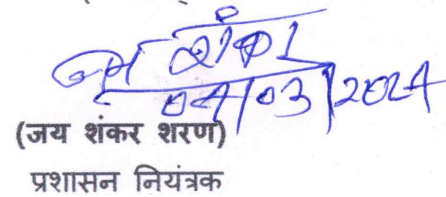 जय शंकर
04/03/2024
(जय शंकर शरण)
प्रशासन नियंत्रक